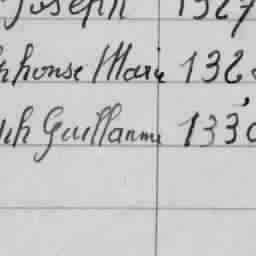 Joseph 1327
phonse Marie 132
eph Guillaume 1330